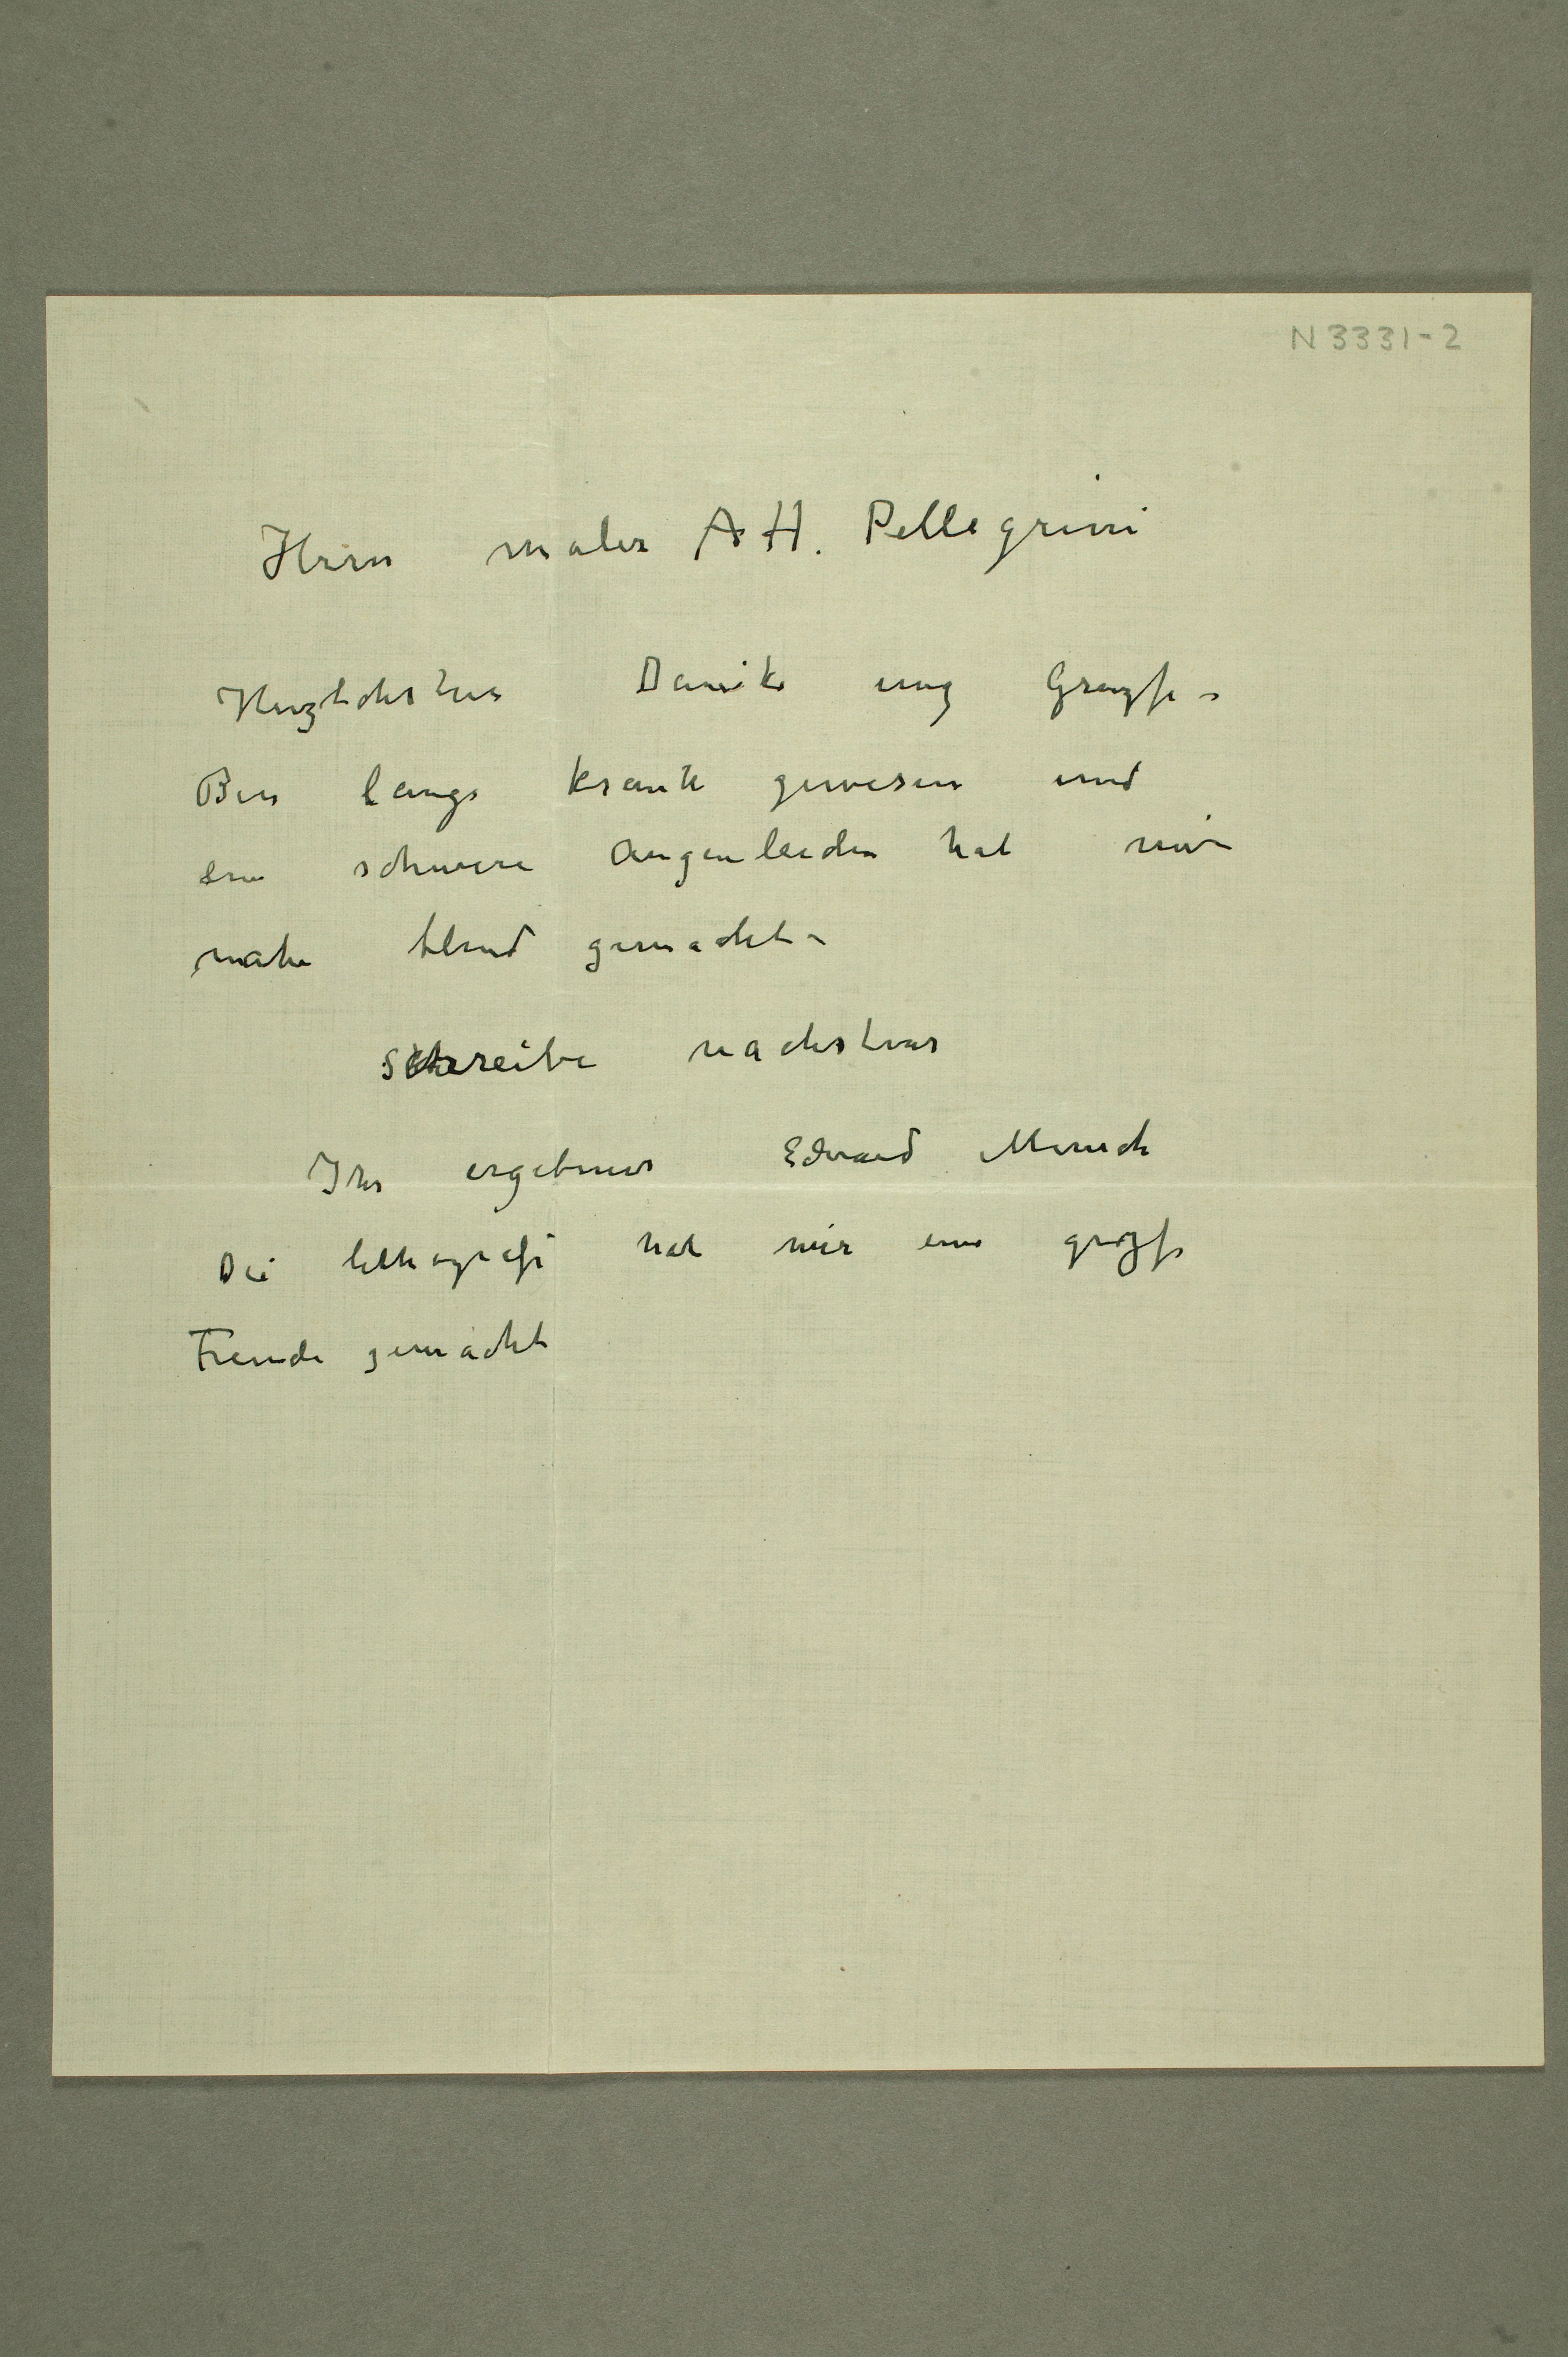 N 3331-2
Herrn maler A H. Pellegrini
Herzlichsten Dank und Gruße –
Bin lange krank gewesen und
ein schwere Augenleiden hat mir
nahe blind gemacht –
Schreibe nächstens
Ihr ergebener Edvard Munch
Die lithografi hat mir eine große
Freude gemacht